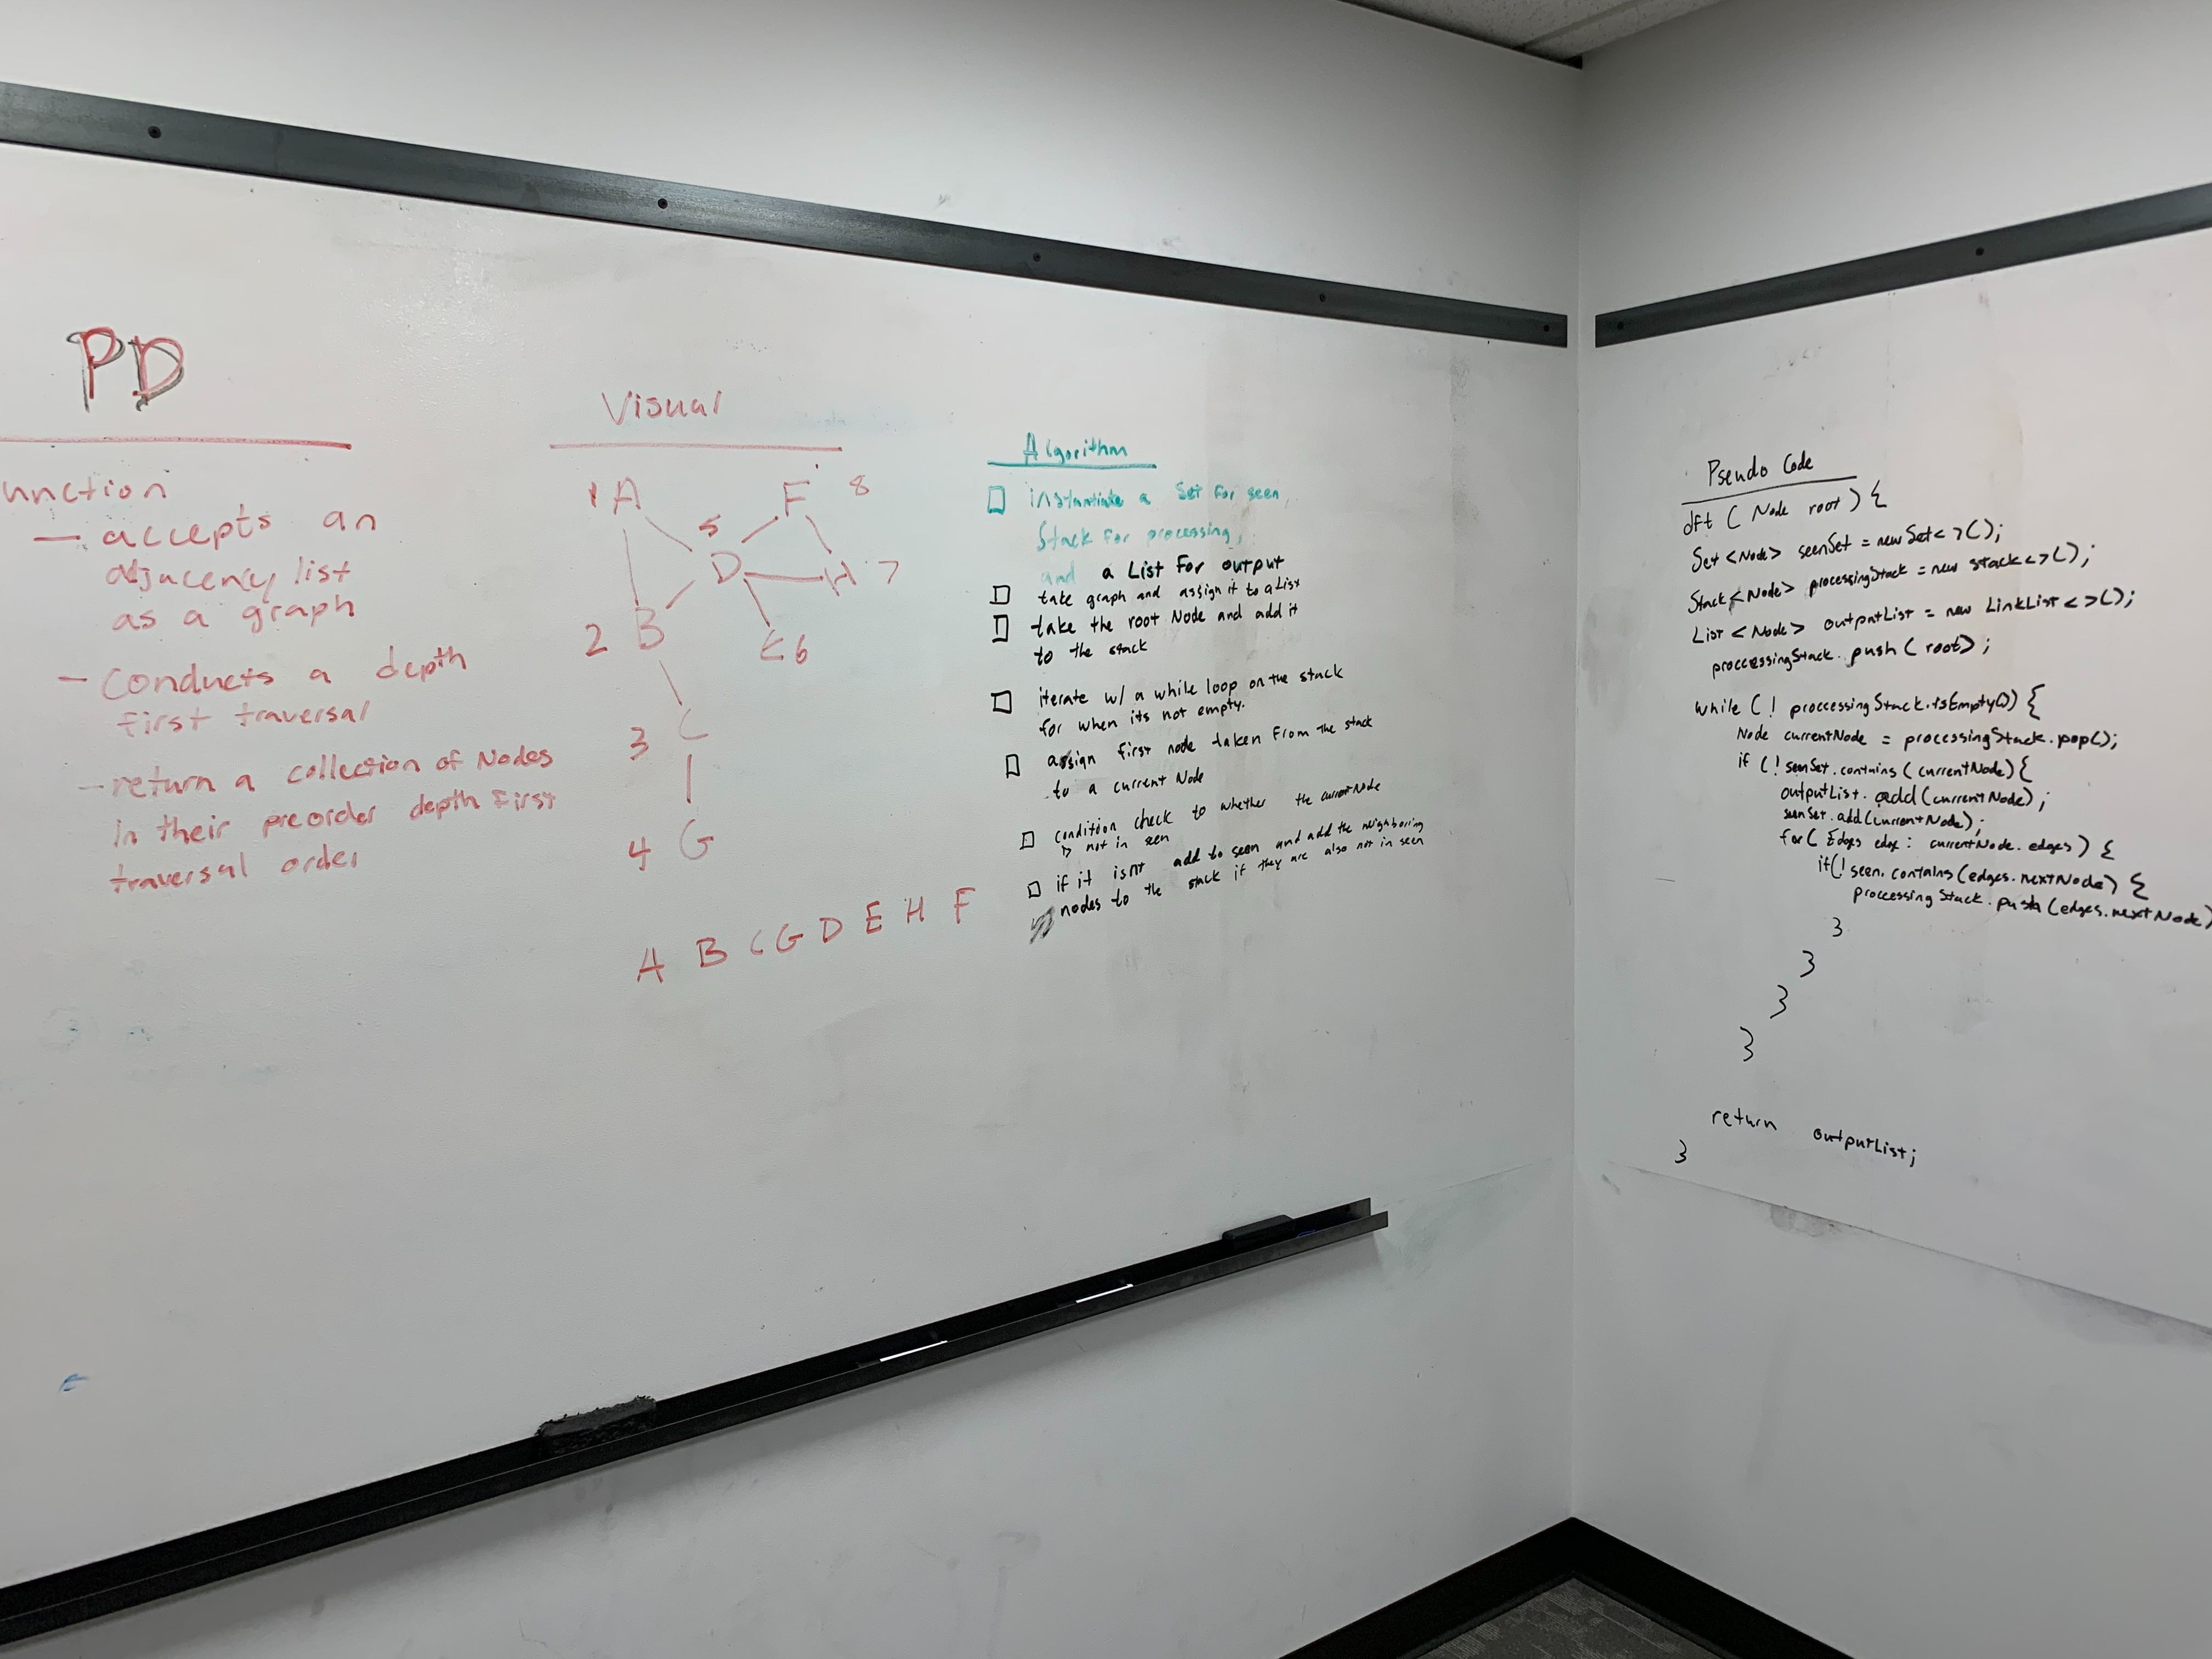 PD
unction
- accepts an
adjacency list
as a graph
- Conducts a depth
first traversal
- return a collection of Nodes
in their preorder depth first
traversal order
Visual
1 A
F 8
5
D
H 7
2 B
E 6
3 C
4 G
A B C G D E H F
Algorithm
instantiate a Set for seen,
Stack for processing,
and a List for output
take graph and assign it to a List
take the root Node and add it
to the stack
iterate w/ a while loop on the stack
for when its not empty.
assign first node taken from the stack
to a current Node
condition check to whether the currentNode
is not in seen
if it isnt add to seen and add the neighboring
nodes to the stack if they are also not in seen
Pseudo Code
dft ( Node root ) {
Set <Node> seenSet = new Set< >();
Stack <Node> processingStack = new stack< >();
List <Node> outputList = new LinkList< >();
proccessingStack.push(root);
while (! proccessingStack.isEmpty()) {
Node currentNode = processingStack.pop();
if (! seenSet.contains(currentNode){
outputList.add(currentNode);
seenSet.add(currentNode);
for( Edges edge : currentNode.edges) {
if(! seen.contains(edges.nextNode) {
proccessingStack.push(edges.nextNode)
}
}
}
}
return outputList;
}